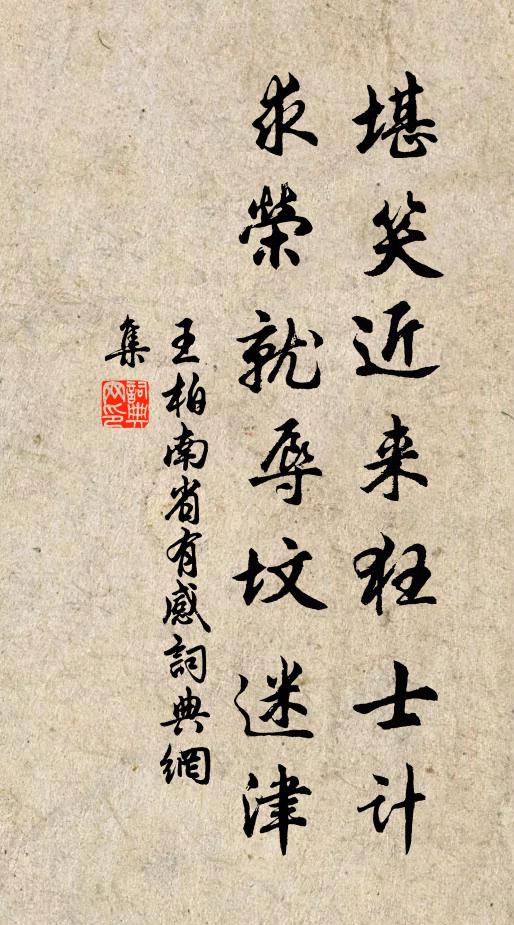 堪笑近来狂士计
求荣就辱坟迷津
王柏南省有感詞典網
集
詞典
网印